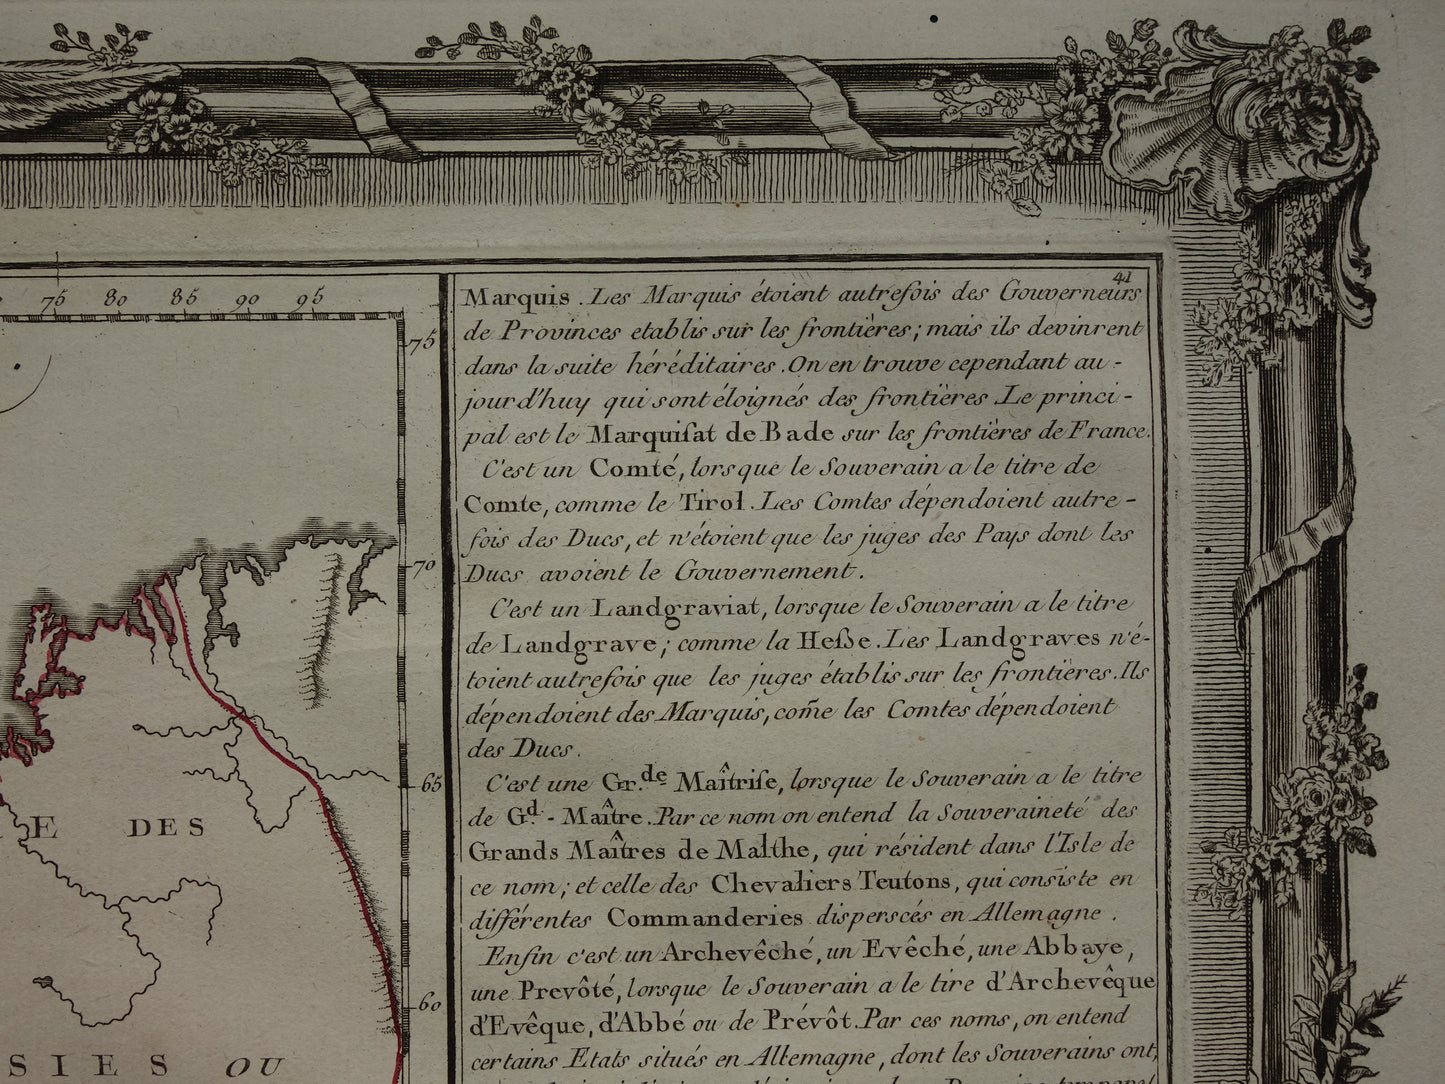 75 80 85 90 95
75
70
65
60
E DES
SIES OU
41
Marquis. Les Marquis étoient autrefois des Gouverneurs
de Provinces etablis sur les frontières; mais ils devinrent
dans la suite héréditaires. On en trouve cependant au-
jourd'huy qui sont éloignés des frontières. Le princi-
pal est le Marquisat de Bade sur les frontières de France.
C'est un Comté, lorsque le Souverain a le titre de
Comte, comme le Tirol. Les Comtes dépendoient autre-
fois des Ducs, et n'étoient que les juges des Pays dont les
Ducs avoient le Gouvernement.
C'est un Landgraviat, lorsque le Souverain a le titre
de Landgrave; comme la Hesse. Les Landgraves n'é-
toient autrefois que les juges établis sur les frontières. Ils
dépendoient des Marquis, com̃e les Comtes dépendoient
des Ducs.
C'est une Gr.de Maîtrise, lorsque le Souverain a le titre
de Gd. - Maître. Par ce nom on entend la Souveraineté des
Grands Maîtres de Malthe, qui résident dans l'Isle de
ce nom; et celle des Chevaliers Teutons, qui consiste en
différentes Commanderies disperscés en Allemagne.
Enfin c'est un Archevêché, un Evêché, une Abbaye,
une Prevôté, lorsque le Souverain a le tire d'Archevêque
d'Evêque, d'Abbé ou de Prévôt. Par ces noms, on entend
certains Etats situés en Allemagne, dont les Souverains ont,